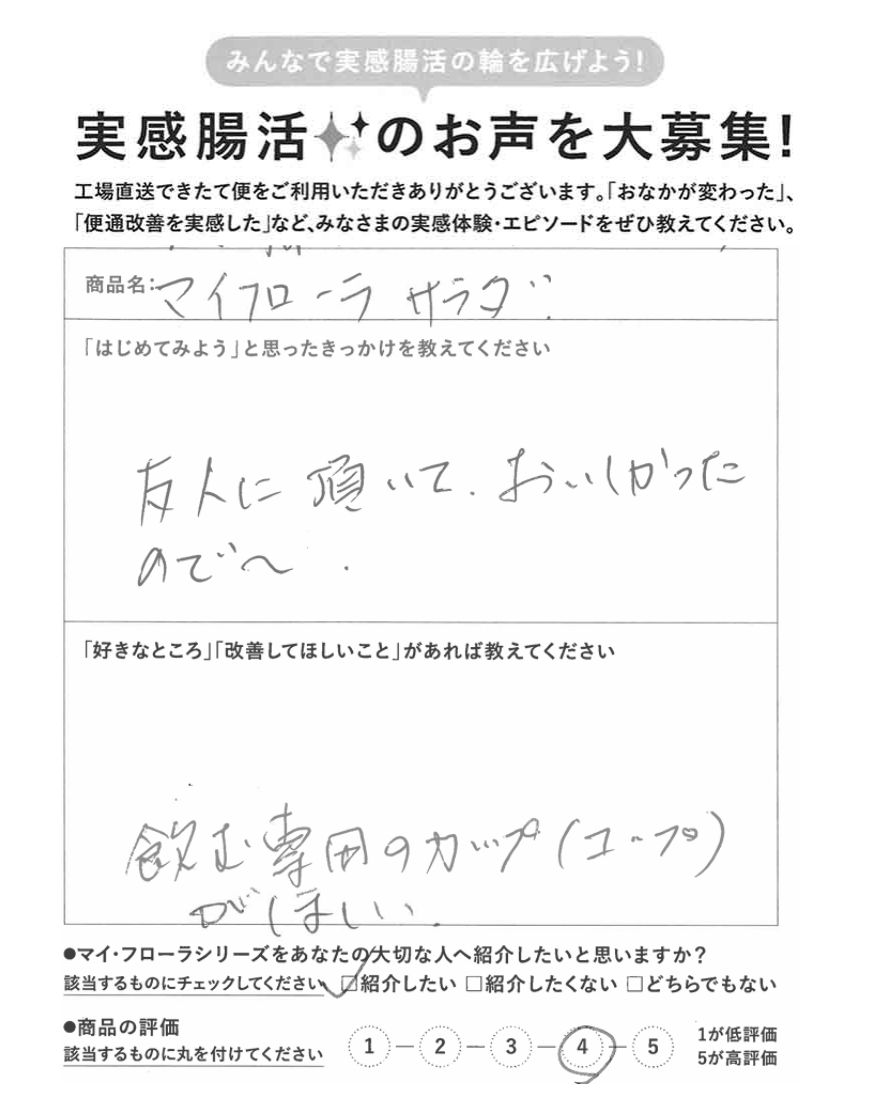 みんなで実感腸活の輪を広げよう!
実感腸活のお声を大募集!
工場直送できたて便をご利用いただきありがとうございます。「おなかが変わった」、
「便通改善を実感した」など、みなさまの実感体験・エピソードをぜひ教えてください。
商品名:マイフローラ サラダ
「はじめてみよう」と思ったきっかけを教えてください
友人に頂いて、おいしかった
ので〜.
「好きなところ」「改善してほしいこと」があれば教えてください
飲む専用のカップ(コップ)
がほしい.
●マイ・フローラシリーズをあなたの大切な人へ紹介したいと思いますか?
該当するものにチェックしてください、☑紹介したい □紹介したくない □どちらでもない
●商品の評価
該当するものに丸を付けてください 1 2 3 4 5 1が低評価
5が高評価